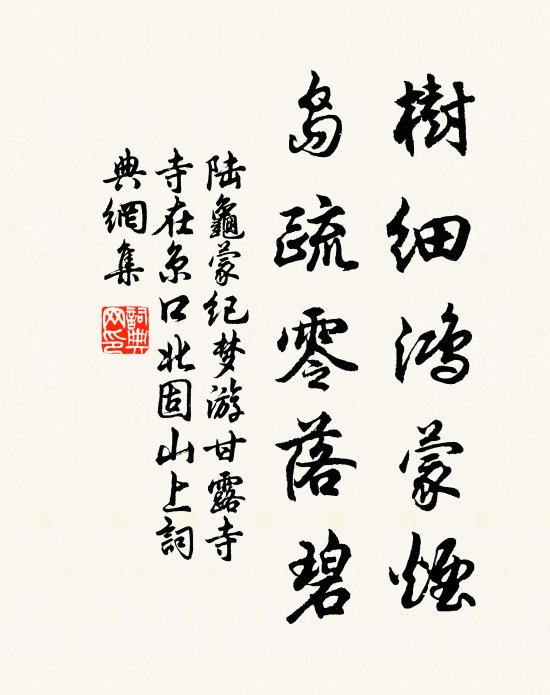 樹細鴻蒙煙
島疏零落碧
陆龜蒙纪梦游甘露寺
寺在京口北固山上詞
典網集
詞典网印